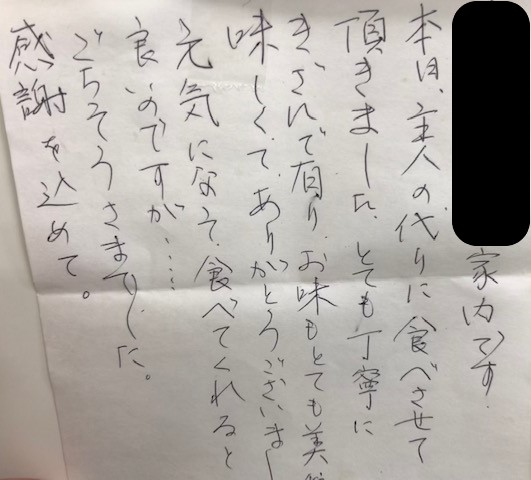 家内です.
本日、主人の代りに食べさせて
頂きました、とても丁寧に
きざんで有り、お味もとても美
味しくて、ありがとうございまし
元気になって、食べてくれると
良いのですが‥‥
ごちそうさまでした。
感謝を込めて。